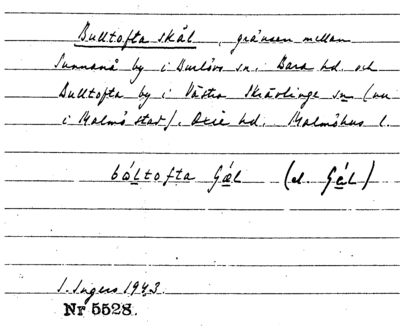 Bulltofta skål, gränsen mellan
Sunnanå by i Burlövs sn. Bara hd. och
Bulltofta by i Västra Skrävlinge sn (nu
i Malmö stad). Oxie hd. Malmöhus l.
bóltofta (el.
I. Ingers 1943.
Nr 5528.